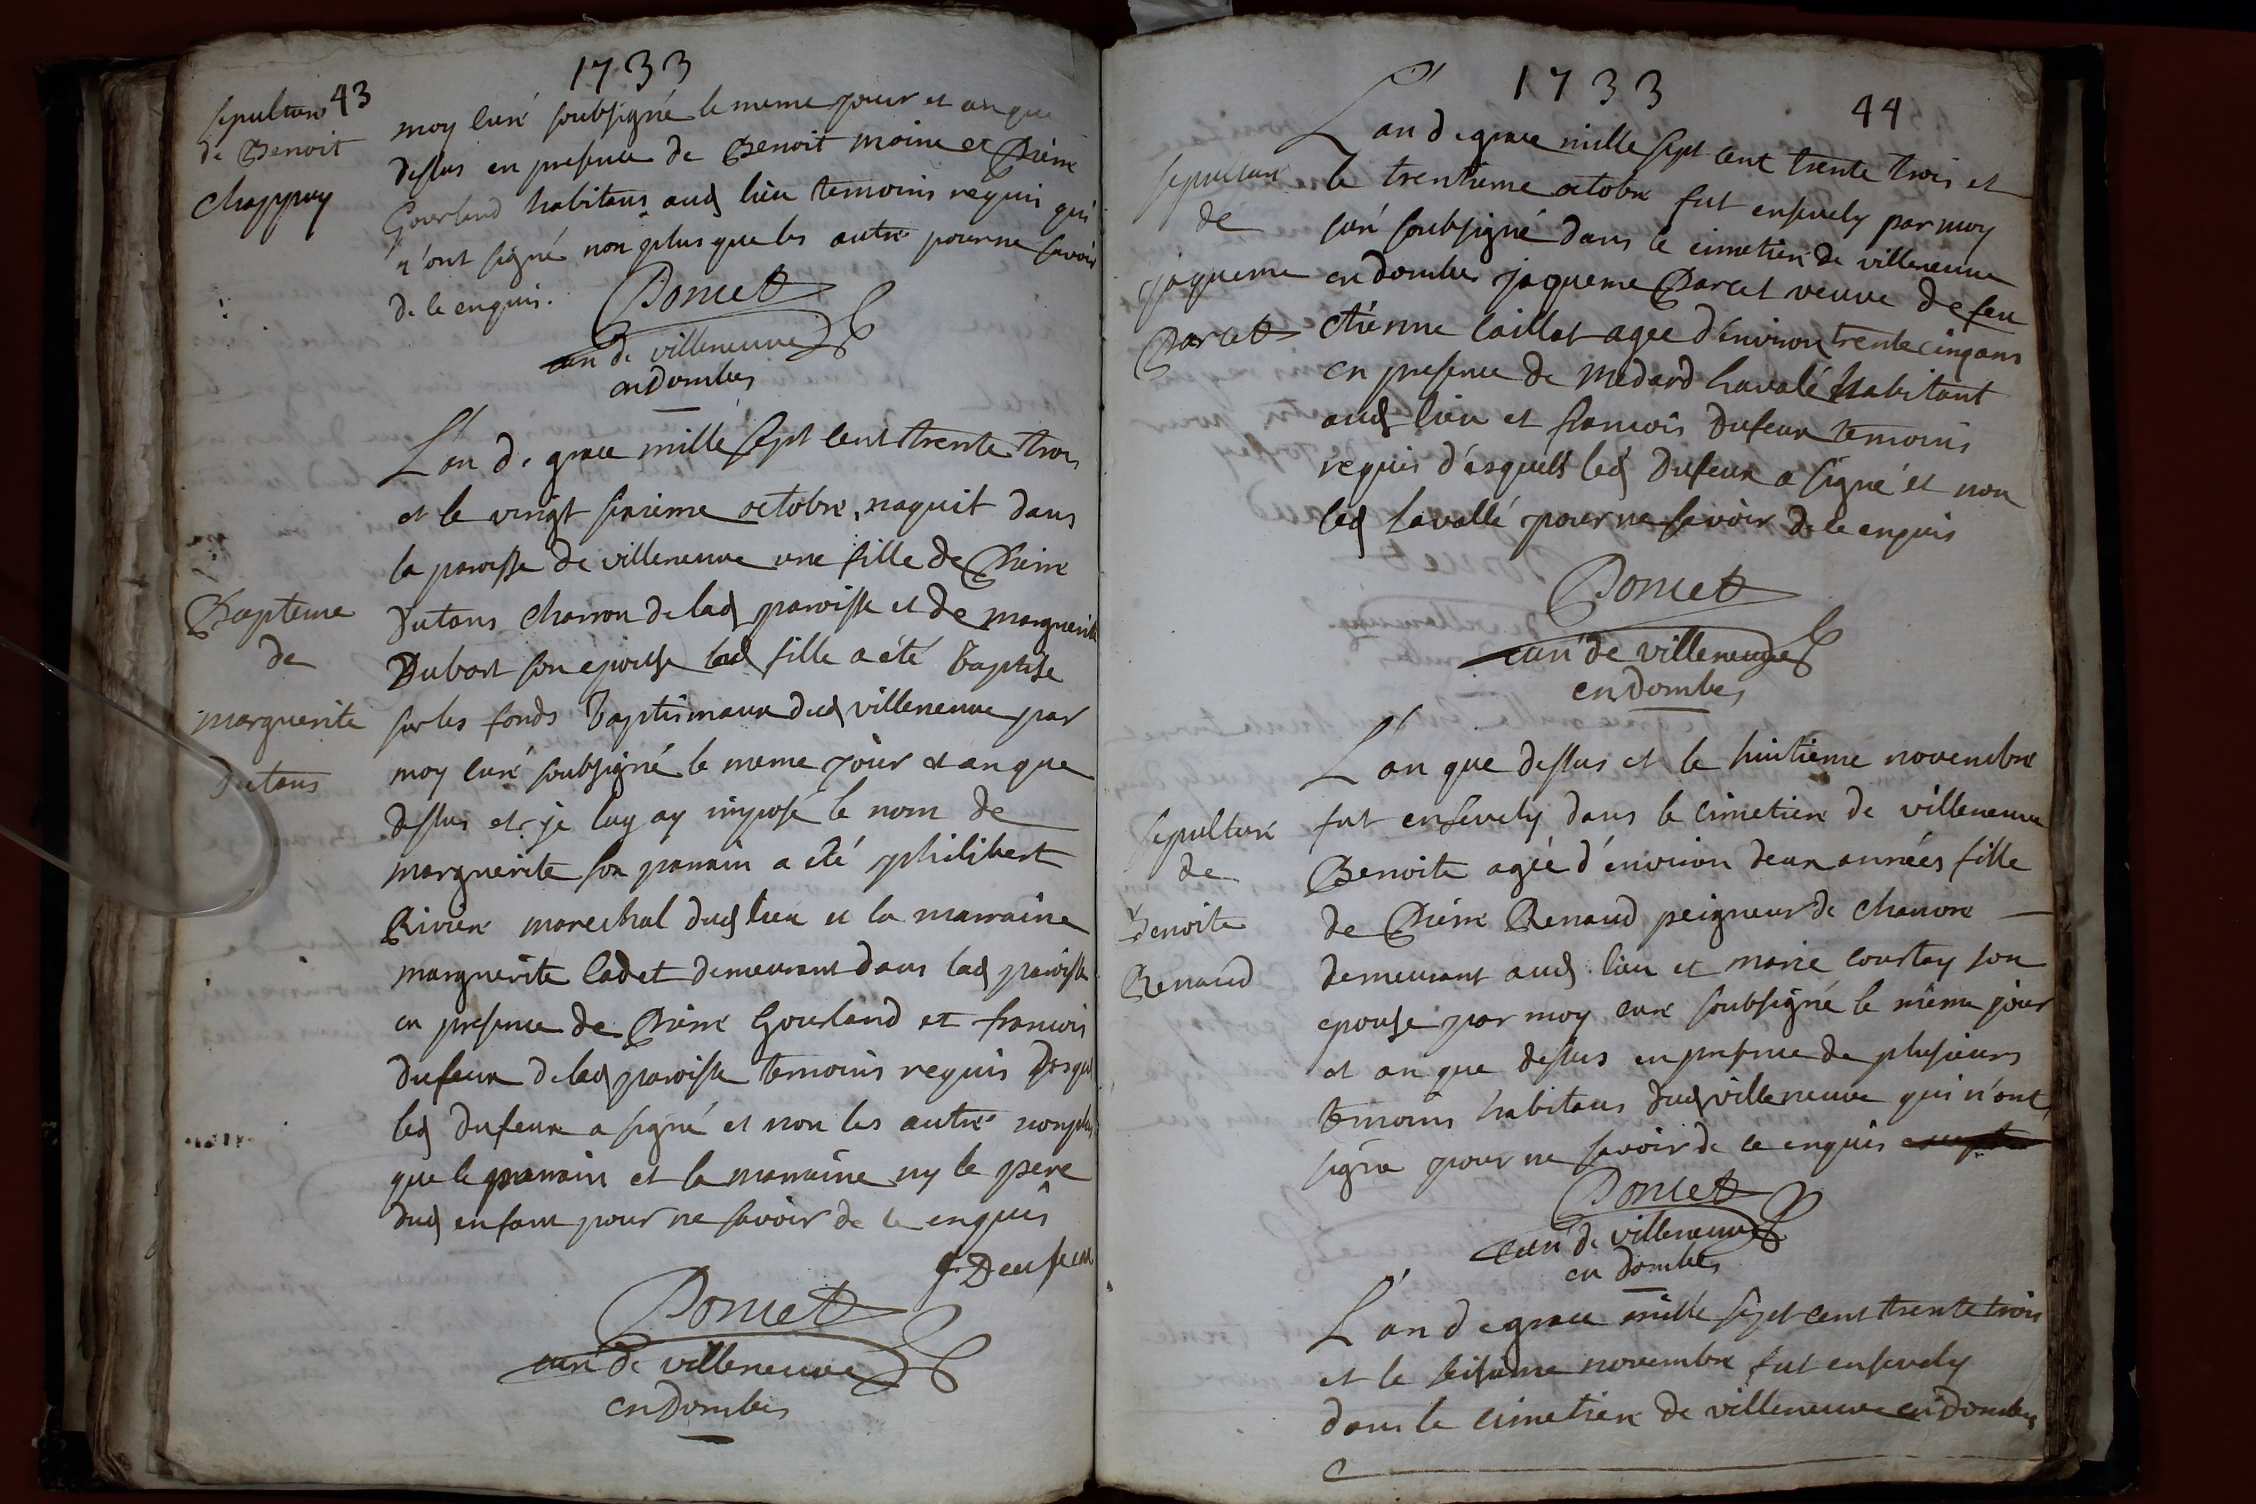 1733
43
sepulture
de Benoit
Chappuy
moy curé soubsigné le meme jour et an que
dessus en presence de Benoit moine et Pierre
Gourland habitans aud lieu temoins requis qui
n'ont signé non plus que les autre pour ne savoir
de ce enquis.
Poncet
curé de villeneuve
en Dombes
L'an de grace mille sept cent trente trois
et le vingt sixieme octobre naquit dans
la paroisse de villeneuve une fille de Pierre
Dutans charron de lad paroisse et de marguerite
Dubost son epouse lad fille a été baptise
sur les fonds baptismaux dud villeneuve par
moy curé soubsigné le meme jour et an que
dessus et je luy ay imposé le nom de
marguerite son parrain a été philibert
Riviere marechal dud lieu et la marraine
marguerite Cadet demeurant dans lad paroisse
en presence de Pierre Gourland et francois
Dufeux de lad paroisse temoins requis desquel
led Dufeux a signé et non les autre non plus
que le parrain et la marraine ny le pere
dud enfant pour ne savoir de ce enquis
Bapteme
de
marguerite
Dutans
f. Deufeux
Poncet
curé de villeneuve
en Dombes
1733
44
L'an de grace mille sept cent trente trois et
le trentieme octobre fut ensevely par moy
curé soubsigné dans le cimetiere de villeneuve
en dombes jaqueme Parcet veuve de feu
etienne caillat agee d'environ trente cinq ans
en presence de medard Lavalé habitant
aud lieu et francois Dufeux temoins
requis d'esquels led Dufeux a signé et non
led Lavallé pour ne savoir de ce enquis
sepulture
de
jaqueme
Parcet
Poncet
curé de villeneuve
en Dombes
L'an que dessus et le huitieme novembre
fut ensevely dans le cimetiere de villeneuve
Benoite agée d'environ deux années fille
de Pierre Renaud peigneur de chanvre
demeurant aud lieu et marie courtay son
epouse par moy curé soubsigné le même jour
et an que dessus en presence de plusieurs
temoins habitans dud villeneuve qui n'ont
signé pour ne savoir de ce enquis
sepulture
de
Benoite
Renaud
Poncet
curé de villeneuve
en Dombes
L'an de grace mille sept cent trente trois
et le seisieme novembre fut ensevely
dans le cimetiere de villeneuve en Dombes